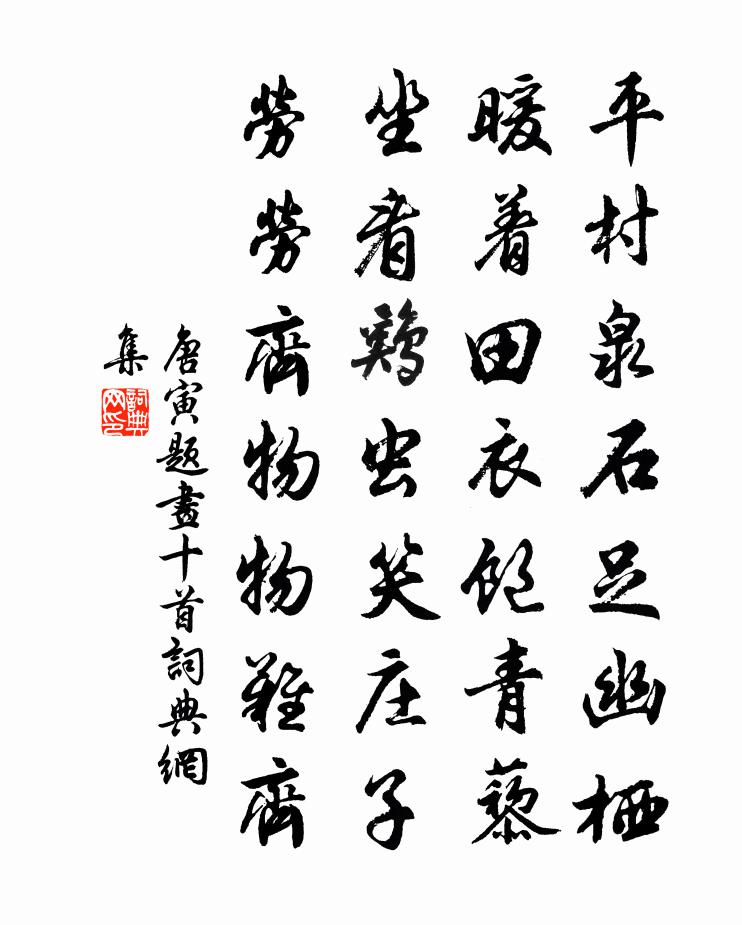 平村泉石足幽栖
暖着田衣飽青藜
坐看鷄虫笑庄子
勞勞齊物物難齊
唐寅題畫十首詞典網
集
詞典
网印